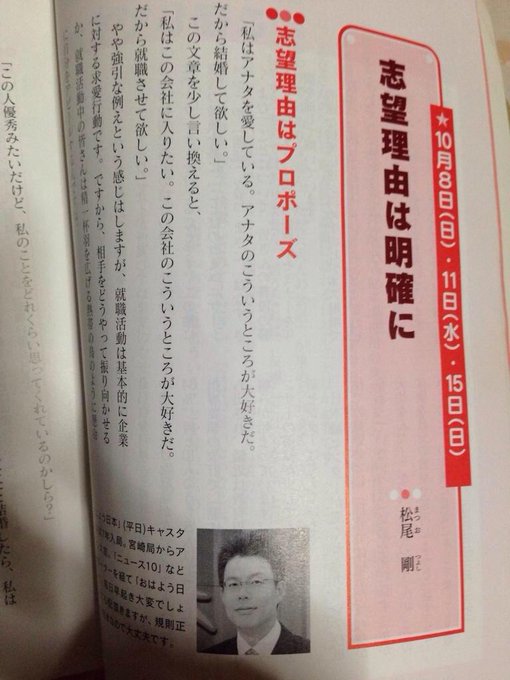 ★10月8日(日)・11日(水)・15日(日)
志望理由は明確に
松尾 剛
まつ お つよし
志望理由はプロポーズ
「私はアナタを愛している。アナタのこういうところが大好きだ。
だから結婚して欲しい。」
この文章を少し言い換えると、
「私はこの会社に入りたい。この会社のこういうところが大好きだ。
だから就職させて欲しい。」
やや強引な例えという感じはしますが、就職活動は基本的に企業
に対する求愛行動です。ですから、相手をどうやって振り向かせる
か、就職活動中の皆さんは精一杯羽を広げる熱帯の鳥のように
「この人優秀みたいだけど、私のことをどれくらい思ってくれているのかしら?」
結婚したら、私は
よう日本」(平日)キャスタ
年入局。宮崎局からア
「ニュース10」など
ーを経て「おはよう日
早起き大変でしょ
きますが、規則正
ので大丈夫です。